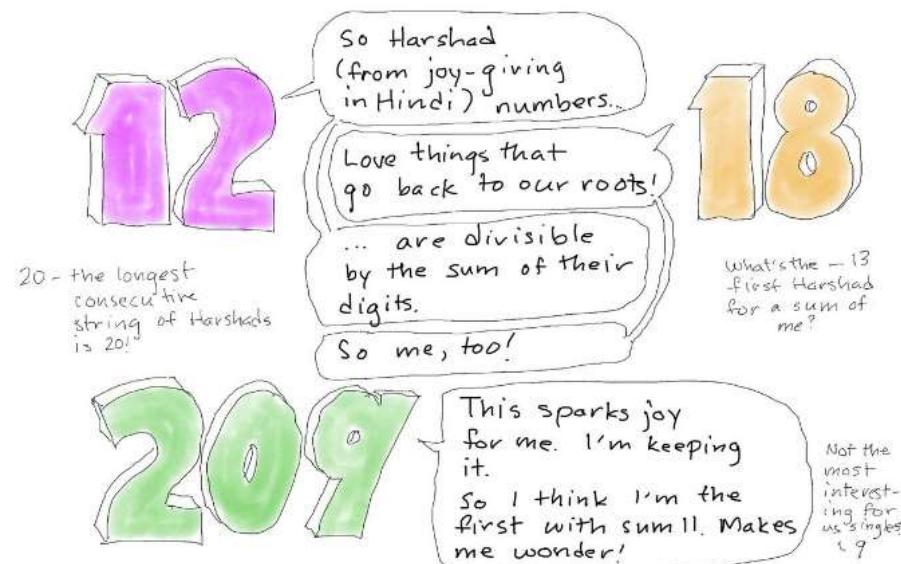 12
So Harshad
(from joy-giving
in Hindi) numbers...
18
Love things that
go back to our roots!
... are divisible
by the sum of their
digits.
So me, too!
20 - the longest
consecutive
string of Harshads
is 20!
What's the - 13
first Harshad
for a sum of
me?
209
This sparks joy
for me. I'm keeping
it.
So I think I'm the
first with sum 11. Makes
me wonder!
Not the
most
interest-
ing for
us singles
9